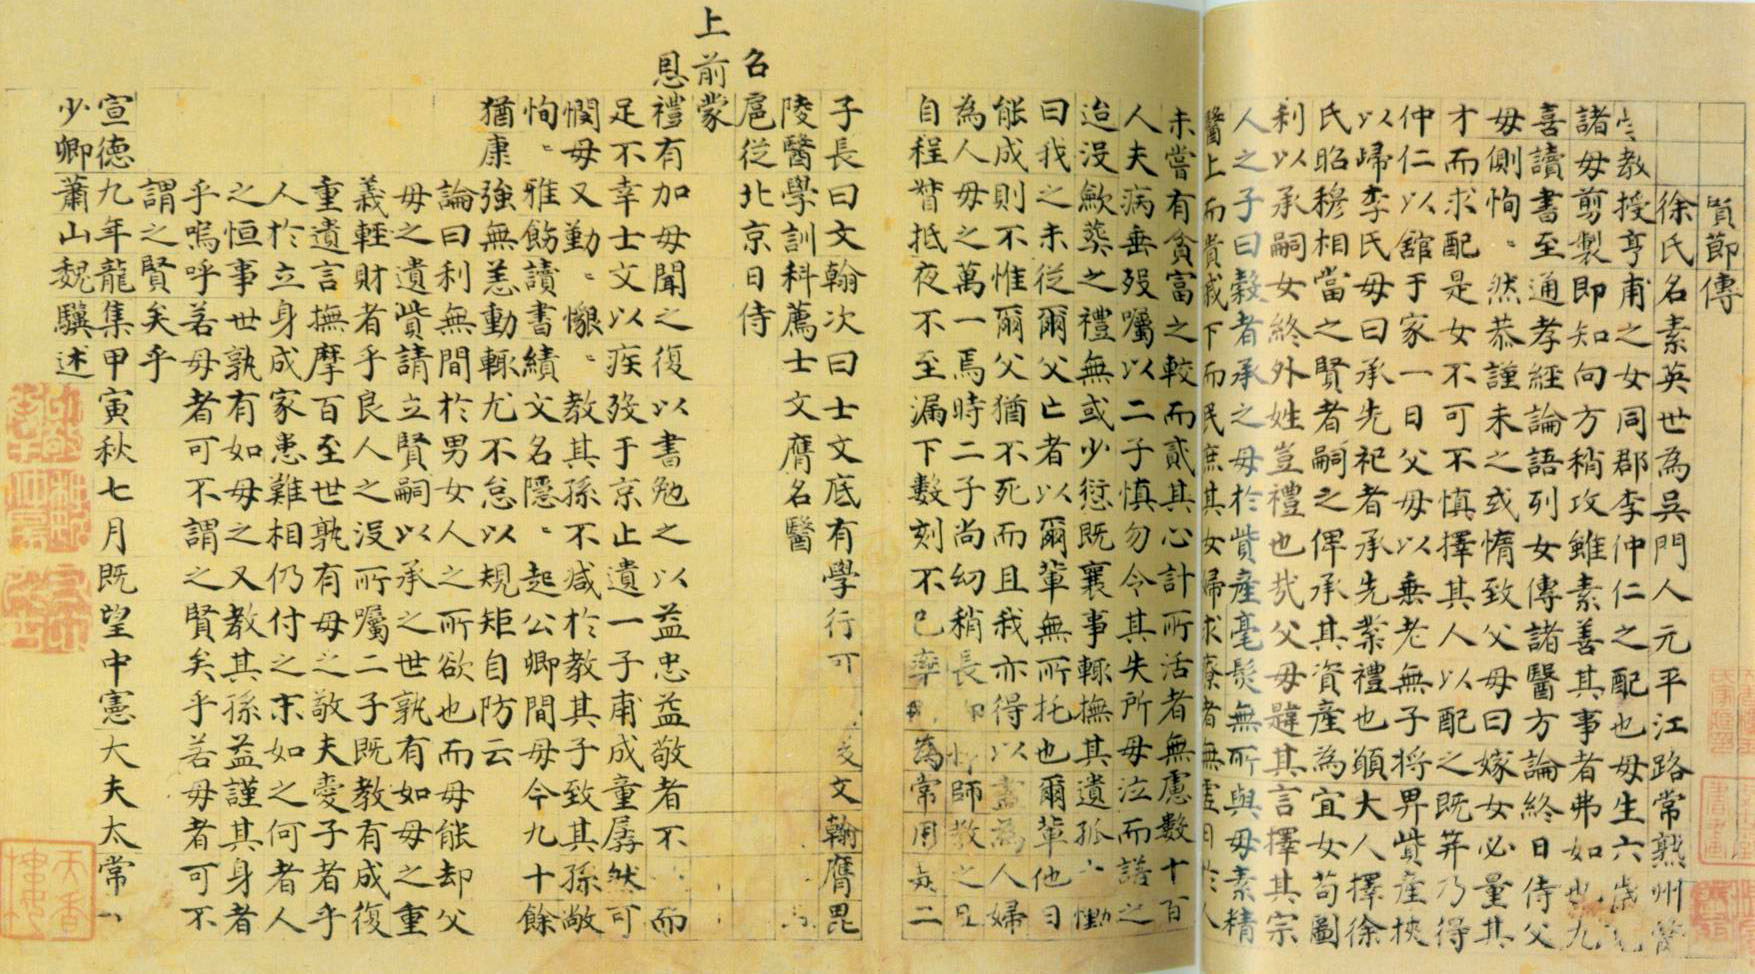 賢節傳
徐氏名素英世為吳門人元平江路常熟州醫
教授亨甫之女同郡李仲仁之配也母生六歲
諸母剪製即知向方稍攻雖素善其事者弗如也九
喜讀書至通孝經論語列女傳諸醫方論終日侍父
母側恂〻然恭謹未之或惰致父母曰嫁女必量其
才而求配是女不可不慎擇其人以配之既筓乃得
仲仁以舘于家一日父母以垂老無子将畀貲產挾
以歸李氏母曰承先祀者承先業禮也願大人擇徐
氏昭穆相當之賢者嗣之俾承其資產為宜女苟圖
利以承嗣女終外姓豈禮也㢤父母韙其言擇其宗
人之子曰穀者承之母於貲產毫髮無所與母素精
醫上而貴戚下而民庶其女婦求療者無虛日於人
未嘗有貧富之較而貳其心計所活者無慮數十百
人夫病垂殁囑以二子慎勿令其失所母泣而諾之
迨没歛葬之禮無或少愆既襄事輒撫其遺孤慟
曰我之未從爾父亡者以爾輩無所托也爾輩他日
能成則不惟爾父猶不死而且我亦得以盡為人婦
為人母之萬一焉時二子尚幼稍長師教之且
自程督抵夜不至漏下數刻不已率為常用是二
子長曰文翰次曰士文底有學行可文翰膺毘
陵醫學訓科薦士文膺名醫
名
扈從北京日侍
上
前蒙
恩
禮有加母聞之復以書勉之以益忠益敬者不而
足不幸士文以疾殁于京止遺一子甫成童孱然可
憫母又勤〻懇〻教其孫不減於教其子致其孫敞
恂〻雅飭讀書績文名隱〻起公卿間母今九十餘
猶康強無恙動輒尤不怠以規矩自防云
論曰利無間於男女人之所欲也而母能却父
母之遺貲請立賢嗣以承之世孰有如母之重
義輕財者乎良人之没所囑二子既教有成復
重遺言撫摩百至世孰有母之敬夫愛子者乎
人於立身成家患難相仍付之末如之何者人
之恒事世孰有如母之又教其孫益謹其身者
乎嗚呼若母者可不謂之賢矣乎若母者可不
謂之賢矣乎
宣德九年龍集甲寅秋七月既望中憲大夫太常
少卿蕭山魏驥述
天香樓